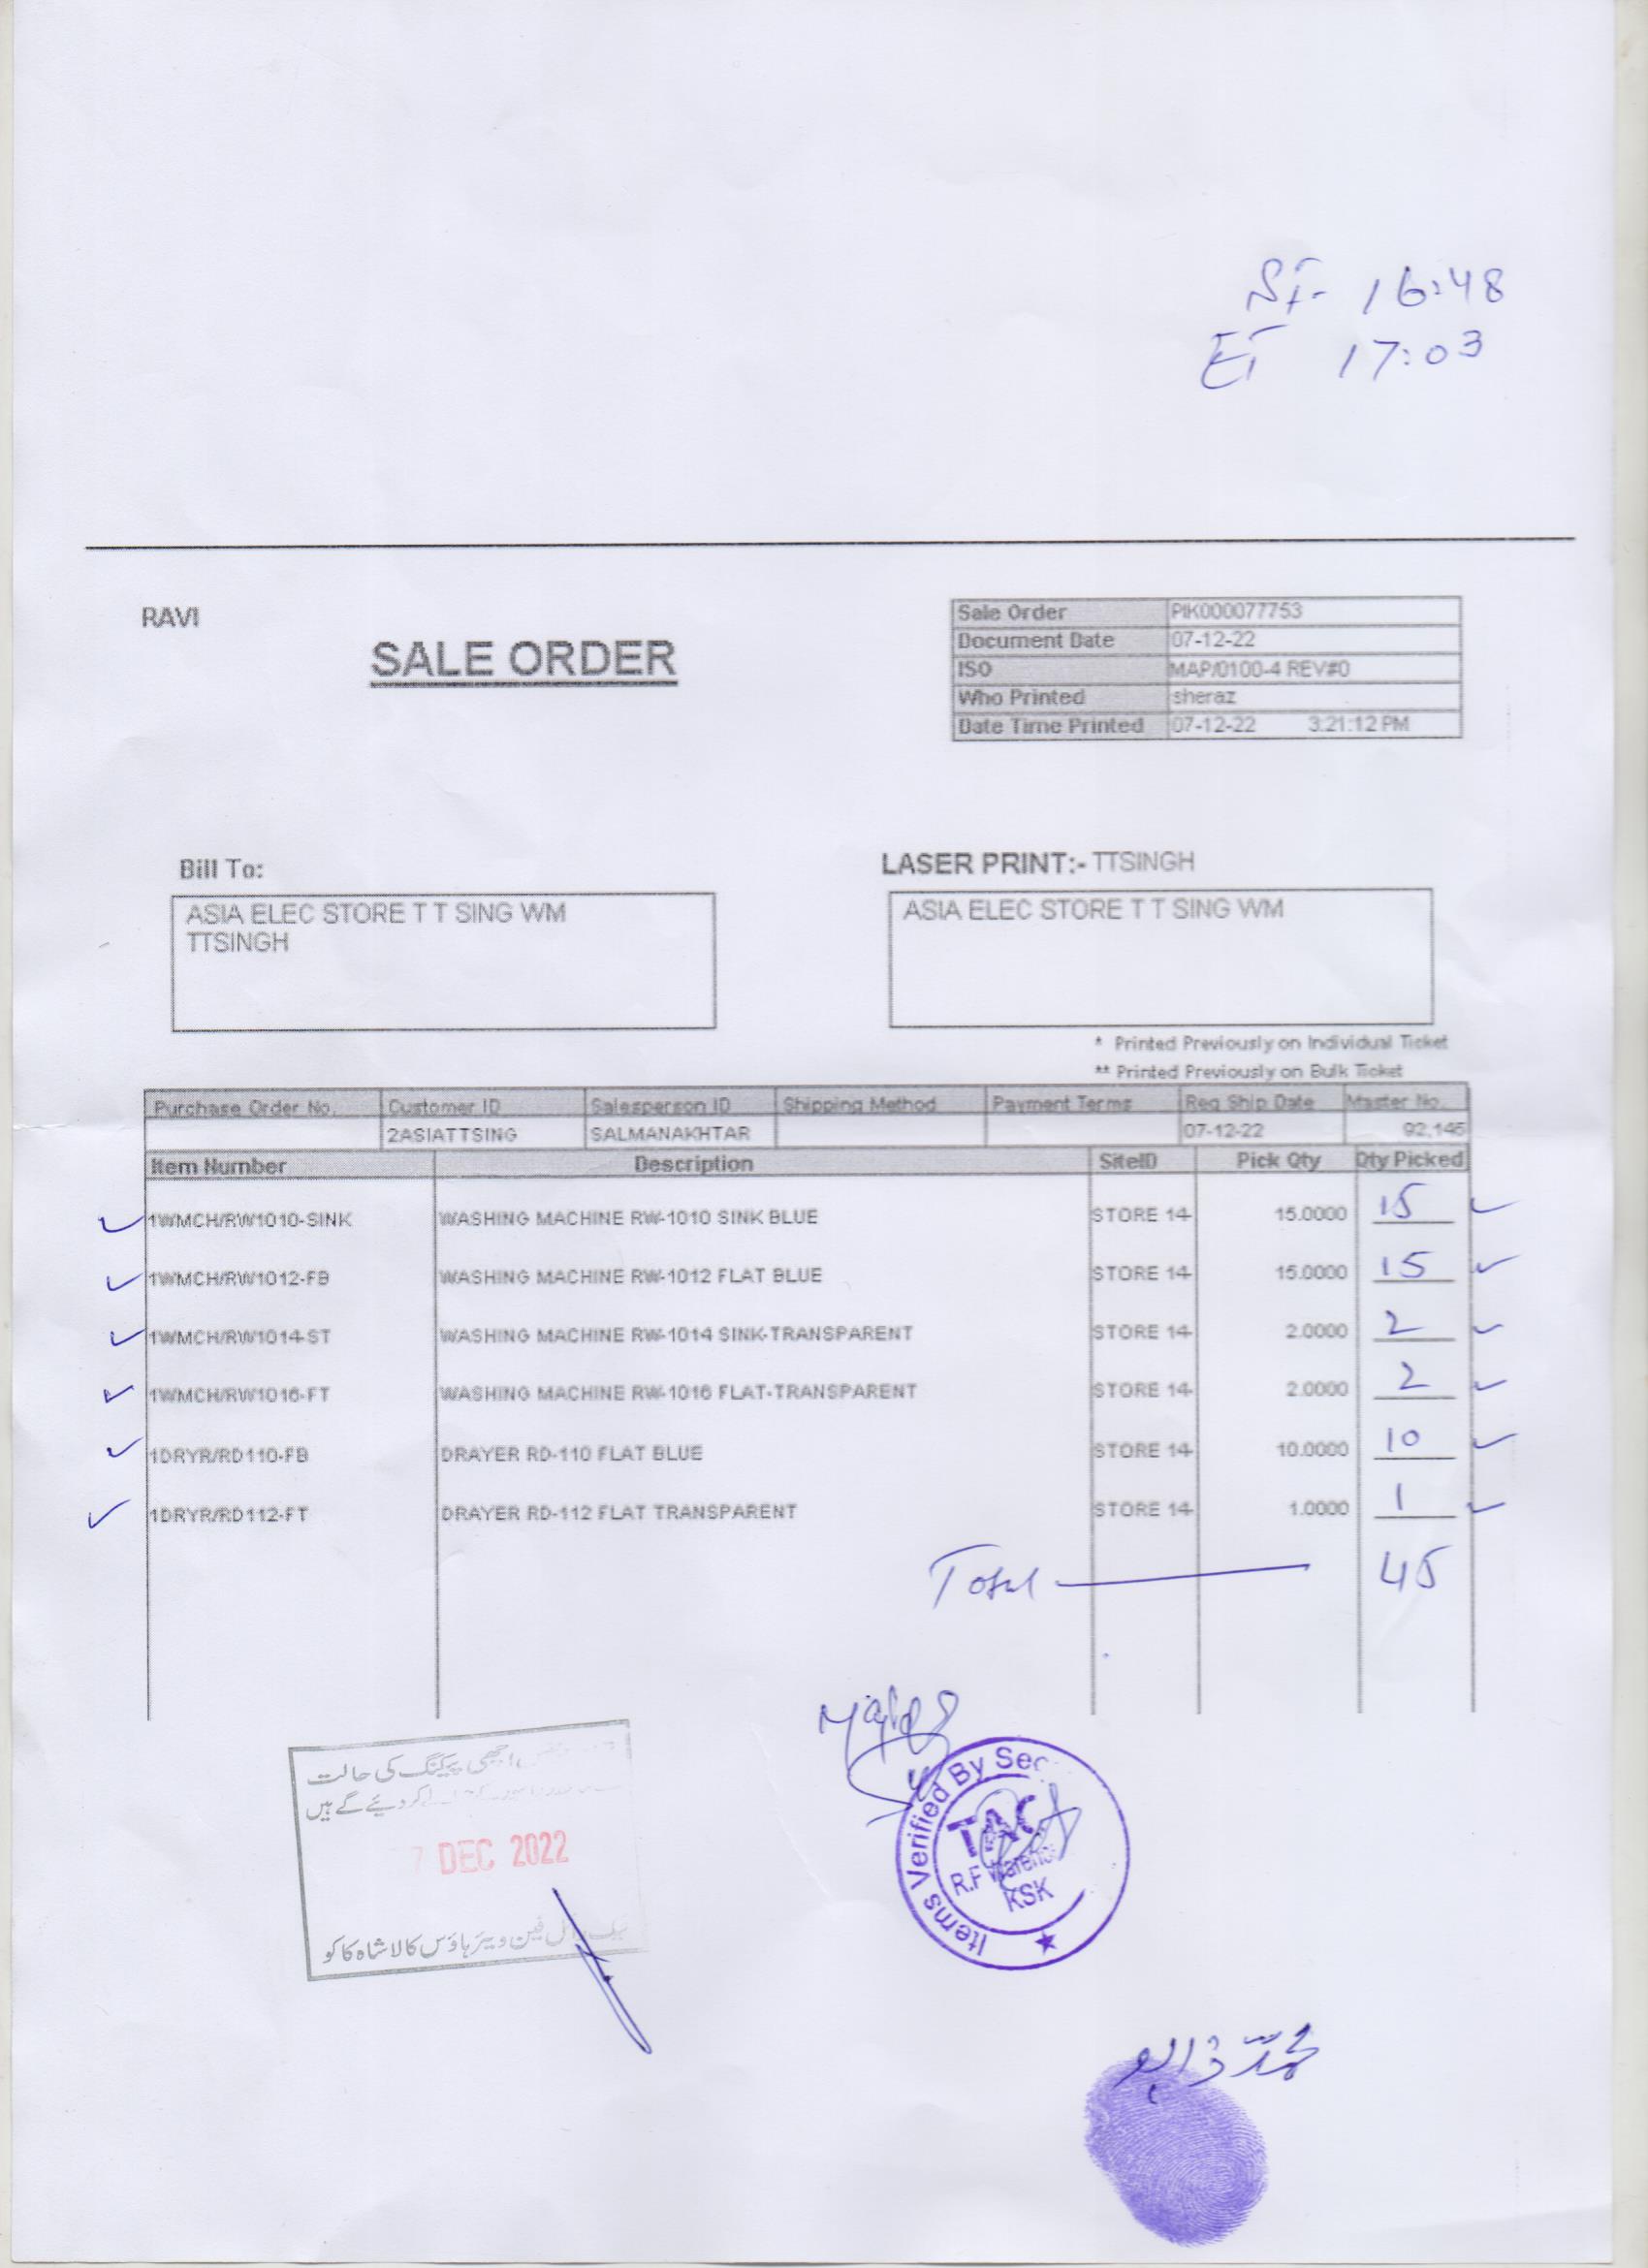 ST- 16:48
ET 17:03
RAVI
SALE ORDER
Sale Order PIK000077753
Document Date 07-12-22
ISO MAP/0100-4 REV#0
Who Printed sheraz
Date Time Printed 07-12-22 3:21:12 PM
Bill To:
LASER PRINT:- TTSINGH
ASIA ELEC STORE T T SING WM
TTSINGH
ASIA ELEC STORE T T SING WM
* Printed Previously on Individual Ticket
** Printed Previously on Bulk Ticket
Purchase Order No. Customer ID Salesperson ID Shipping Method Payment Terms Req Ship Date Master No.
2ASIATTSING SALMANAKHTAR 07-12-22 92,145
Item Number Description SiteID Pick Qty Qty Picked
1WMCH/RW1010-SINK WASHING MACHINE RW-1010 SINK BLUE STORE 14 15.0000 15
1WMCH/RW1012-FB WASHING MACHINE RW-1012 FLAT BLUE STORE 14 15.0000 15
1WMCH/RW1014-ST WASHING MACHINE RW-1014 SINK-TRANSPARENT STORE 14 2.0000 2
1WMCH/RW1016-FT WASHING MACHINE RW-1016 FLAT-TRANSPARENT STORE 14 2.0000 2
1DRYR/RD110-FB DRAYER RD-110 FLAT BLUE STORE 14 10.0000 10
1DRYR/RD112-FT DRAYER RD-112 FLAT TRANSPARENT STORE 14 1.0000 1
Total 45
اچھی پیکنگ کی حالت
کر دیئے گے ہیں
7 DEC 2022
فین ویئر ہاؤس کالا شاہ کاکو
Items Verified By Sec
TAC
R.F Wareho
KSK
محمد